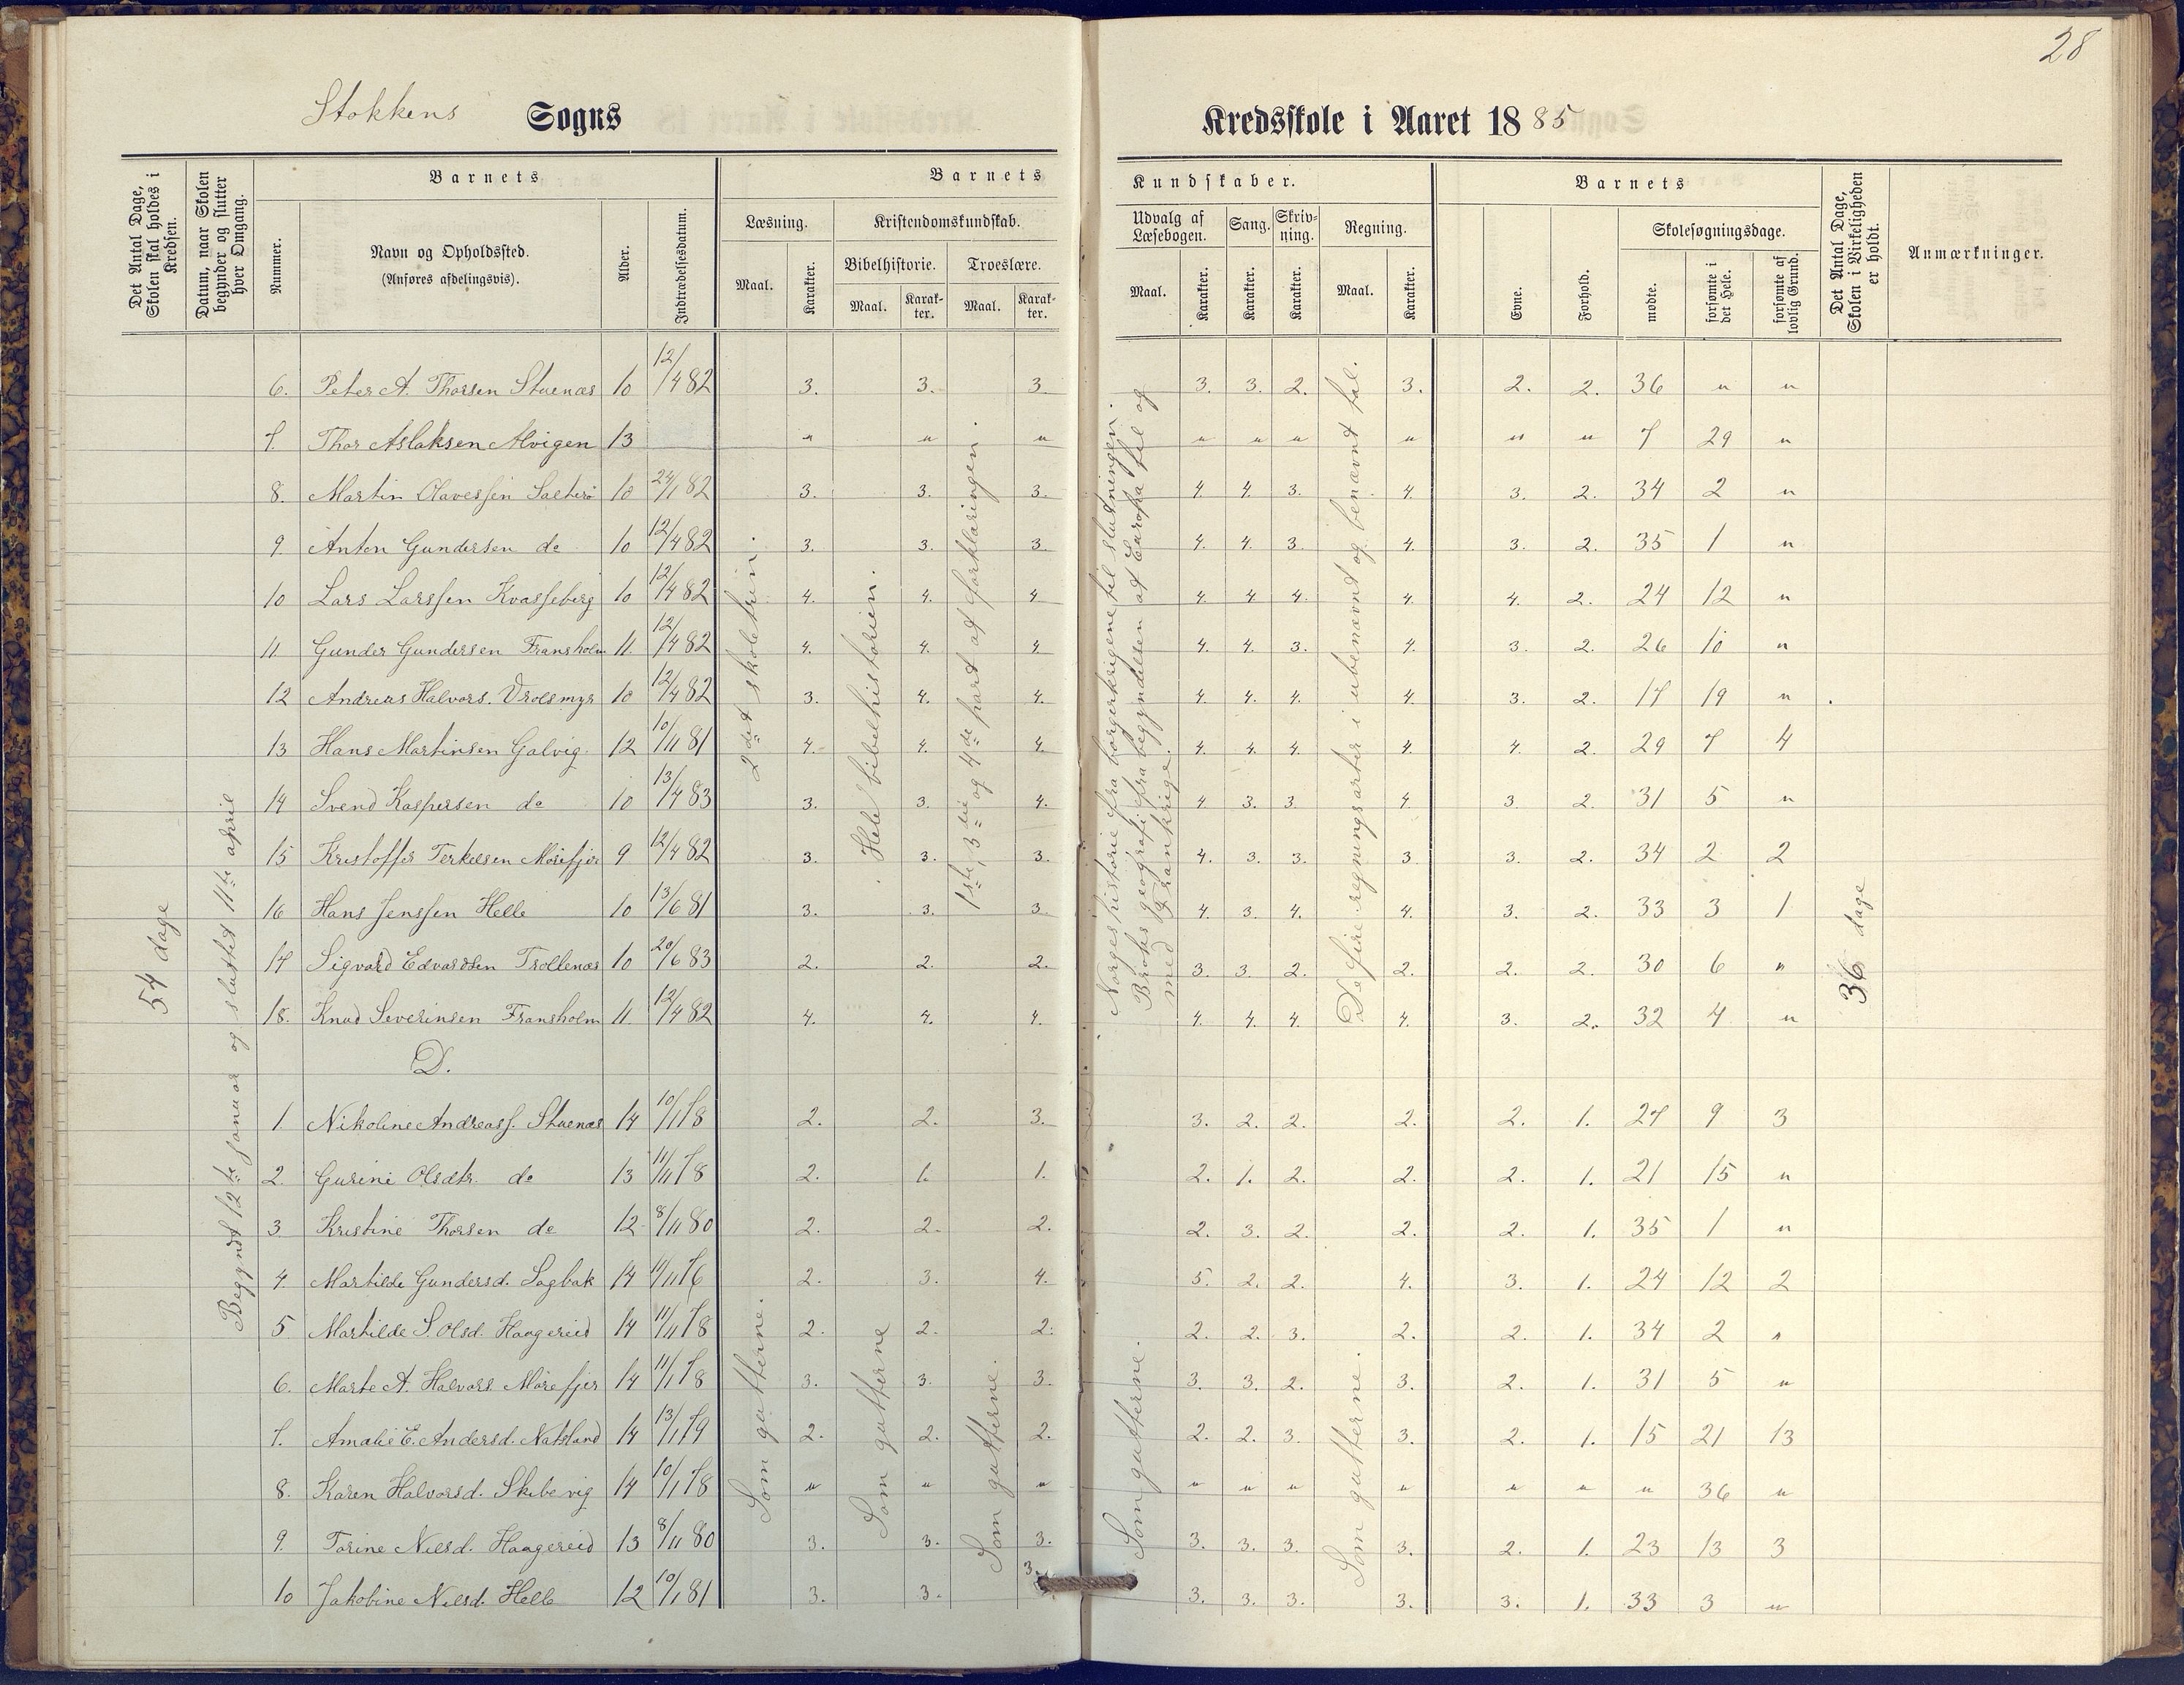 28
Stokkens Sogns
Kredsskole i Aaret 1885
Det Antal Dage, Skolen skal holdes i Kredsen.
Datum, naar Skolen begynder og slutter hver Omgang.
Barnets
Nummer.
Navn og Opholdssted.
(Anføres afdelingsvis).
Alder.
Indtrædelsesdatum.
Barnets
Læsning.
Maal.
Karakter.
Kristendomskundskab.
Bibelhistorie.
Maal.
Karakter.
Troeslære.
Maal.
Karakter.
Kundskaber.
Udvalg af Læsebogen.
Maal.
Karakter.
Sang.
Karakter.
Skrivning.
Karakter.
Regning.
Maal.
Karakter.
Barnets
Evne.
Forhold.
Skolesøgningsdage.
mødte.
forsømte i det Hele.
forsømte af lovlig Grund.
Det Antal Dage, Skolen i Virkeligheden er holdt.
Anmærkninger.
54 dage
Begyndt 12te januar og sluttet 11te april
2det skoletrin.
Hele bibelhistorien.
1ste, 3die og 4de part af forklaringen.
Norges historie fra borgerkrigene til slutningen.
Brochs geografi fra begyndelsen af Europa til og
med Frankrige.
De fire regningsarter i ubenævnt og benævnt tal.
36 dage
6. Peter A. Thorsen Stuenæs 10 12/4 82 3. 3. 3. 3. 3. 2. 3. 2. 2. 36 " "
7. Thor Aslaksen Alvigen 13 " " " " " " " " " 7 29 "
8. Martin Olavessen Salterø 10 24/1 82 3. 3. 3. 4. 4. 3. 4. 3. 2. 34 2 "
9. Anton Gundersen do 10 12/4 82 3. 3. 3. 4. 4. 3. 4. 3. 2. 35 1 "
10 Lars Larssen Kvasseberg 10 12/4 82 4. 4. 4. 4. 4. 4. 4. 4. 2. 24 12 "
11 Gunder Gundersen Fransholm 11. 12/4 82 4. 4. 4. 4. 4. 3. 4. 3. 2. 26 10 "
12 Andreas Halvors. Vrolsmyr 10 12/4 82 3. 4. 4. 4. 4. 4. 4. 3. 2. 17 19 "
13 Hans Martinsen Galvig. 12 10/11 81 4. 4. 4. 4. 4. 4. 4. 4. 2. 29 7 4
14 Svend Kaspersen do 10 13/4 83 3. 3. 4. 4. 3. 3. 4. 3. 2. 31 5 "
15 Kristoffer Terkelsen Mørefjær 9 12/4 82 3. 3. 3. 4. 3. 3. 3. 3. 2. 34 2 2
16 Hans Jenssen Helle 10 13/6 81 3. 3. 3. 4. 3. 4. 4. 3. 2. 33 3 1
17 Sigvard Edvardsen Trollenæs 10 20/6 83 2. 2. 2. 3. 3. 2. 2. 2. 2. 30 6 "
18. Knud Severinsen Fransholm 11. 12/4 82 4. 4. 4. 4. 4. 4. 4. 3. 2. 32 4 "
D.
1. Nikoline Andreass. Stuenæs 14 10/1 78 2. 2. 3. 3. 2. 2. 2. 2. 1. 27 9 3
2. Gurine Olsdtr. do 13 11/11 78 2. 1. 1. 2. 1. 2. 2. 2. 1. 21 15 "
3 Kristine Thorsen do 12 8/11 80 2. 2. 2. 2. 3. 2. 2. 2. 1. 35 1 "
4. Marthilde Gundersd. Sagbak 14 11/11 76 2. 3. 4. 5. 2. 2. 4. 3. 1. 24 12 2
5 Marthilde S. Olsd. Haagereid 14 11/11 78 2. 2. 2. 2. 2. 3. 2. 2. 1. 34 2 "
6. Marte A. Halvors. Mørefjær 14 11/1 78 3. 3. 3. 3. 3. 2. 3. 2. 1. 31 5 "
7. Amalie E. Andersd. Natsland 14 13/1 79 2. 2. 2. 2. 2. 3. 3. 2. 1. 15 21 13
8. Karen Halvorsd. Skibevig 14 10/1 78 " " " " " " " " " " 36 "
9. Torine Nilsd. Haagereid 13 8/11 80 3. 3. 3. 3. 3. 3. 3. 2. 1. 23 13 3
10 Jakobine Nilsd. Helle 12 10/1 81 3. 3. 3. 3. 3. 3. 3. 3. 1. 33 3 "
Som gutterne.
Som gutterne
Som gutterne.
Som gutterne.
Som gutterne.